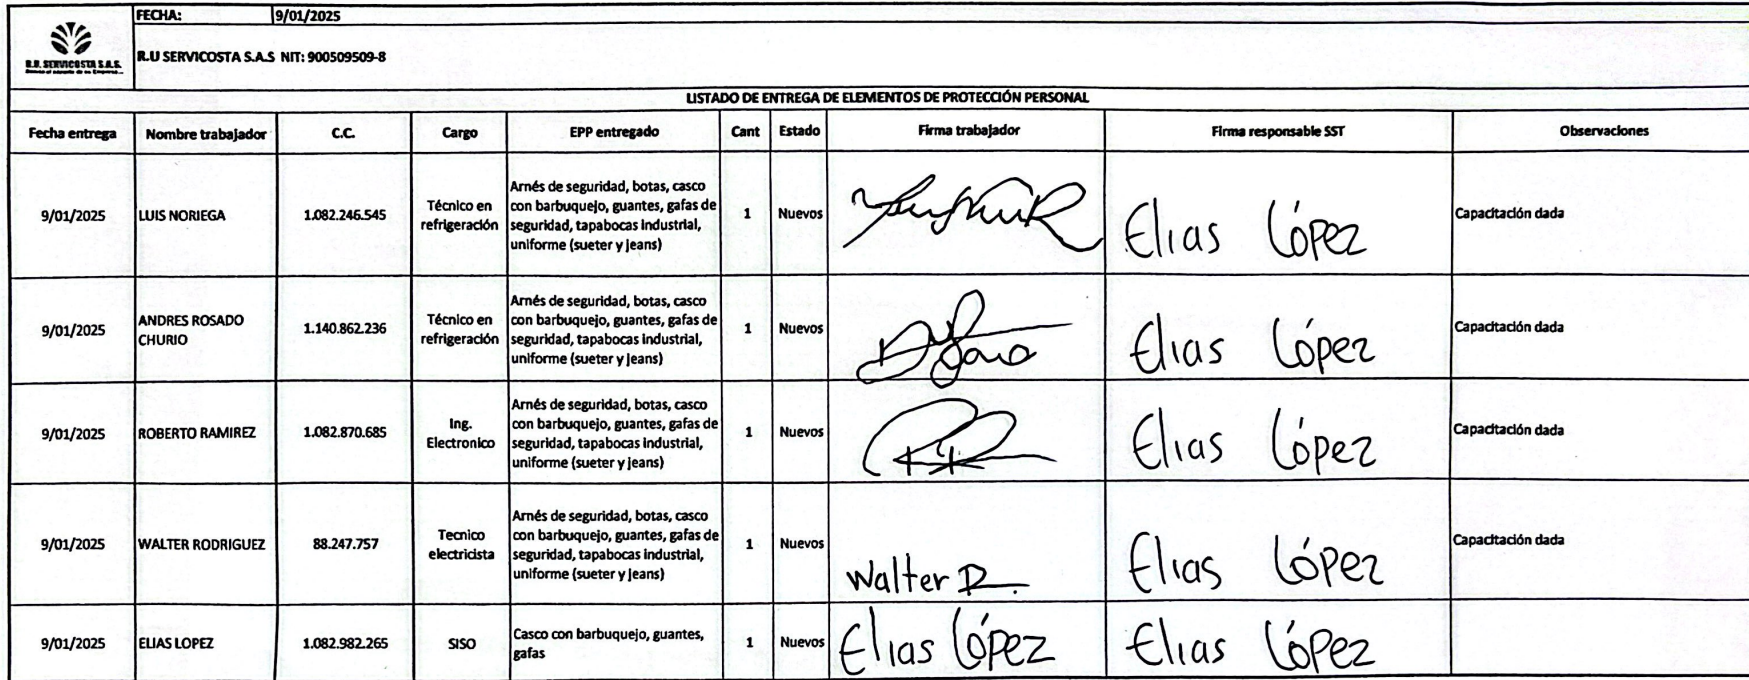 FECHA: 9/01/2025
R.U. SERVICOSTA S.A.S.
R.U SERVICOSTA S.A.S NIT: 900509509-8
LISTADO DE ENTREGA DE ELEMENTOS DE PROTECCIÓN PERSONAL
Fecha entrega Nombre trabajador C.C. Cargo EPP entregado Cant Estado Firma trabajador Firma responsable SST Observaciones
9/01/2025
LUIS NORIEGA
1.082.246.545
Técnico en
refrigeración
Arnés de seguridad, botas, casco
con barbuquejo, guantes, gafas de
seguridad, tapabocas industrial,
uniforme (sueter y jeans)
1
Nuevos
Elias López
Capacitación dada
9/01/2025
ANDRES ROSADO
CHURIO
1.140.862.236
Técnico en
refrigeración
Arnés de seguridad, botas, casco
con barbuquejo, guantes, gafas de
seguridad, tapabocas industrial,
uniforme (sueter y jeans)
1
Nuevos
Elias López
Capacitación dada
9/01/2025
ROBERTO RAMIREZ
1.082.870.685
Ing.
Electronico
Arnés de seguridad, botas, casco
con barbuquejo, guantes, gafas de
seguridad, tapabocas industrial,
uniforme (sueter y jeans)
1
Nuevos
Elias López
Capacitación dada
9/01/2025
WALTER RODRIGUEZ
88.247.757
Tecnico
electricista
Arnés de seguridad, botas, casco
con barbuquejo, guantes, gafas de
seguridad, tapabocas industrial,
uniforme (sueter y jeans)
1
Nuevos
Walter R.
Elias López
Capacitación dada
9/01/2025
ELIAS LOPEZ
1.082.982.265
SISO
Casco con barbuquejo, guantes,
gafas
1
Nuevos
Elias López
Elias López